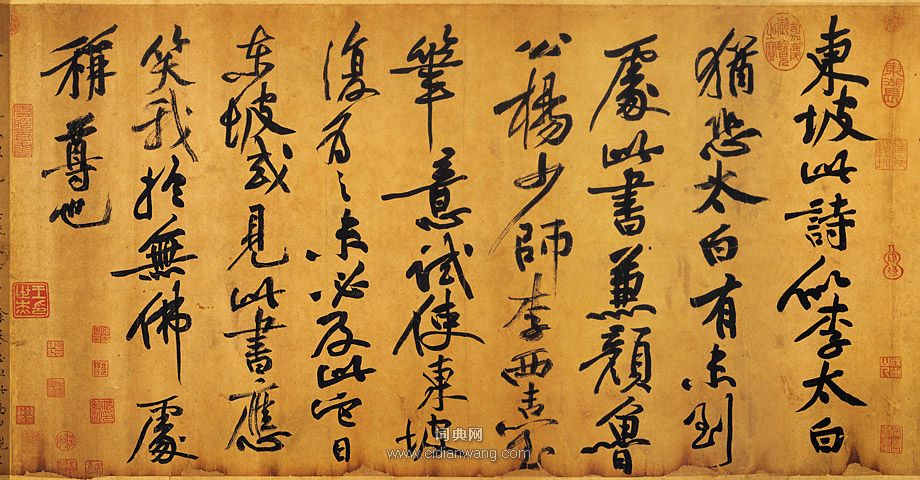 東坡此詩似李太白
猶恐太白有未到
處此書兼顏魯
公楊少師李西臺
筆意試使東坡
復為之未必及此它日
东坡或見此書應
笑我於無佛處
稱尊也
嘉慶御覽之寶
東湖長
词典网
www.cidianwang.com